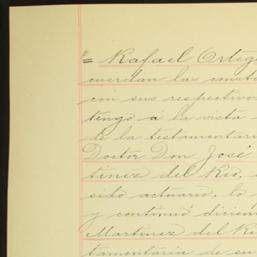 = Rafael Orteg
cuerdan las const
con sus respectivo
tengo á la vista
de la testamentari
Doctor Don José
tinez del Rio,
sido actuario, lo
y continuó dicien
Martinez del Ri
tamentaria de su